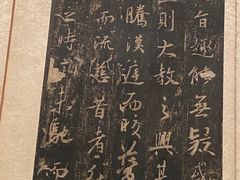 旨趣能無疑或
則大教之興基
騰漢庭而皎夢
而流慈昔者分
之時言未馳而